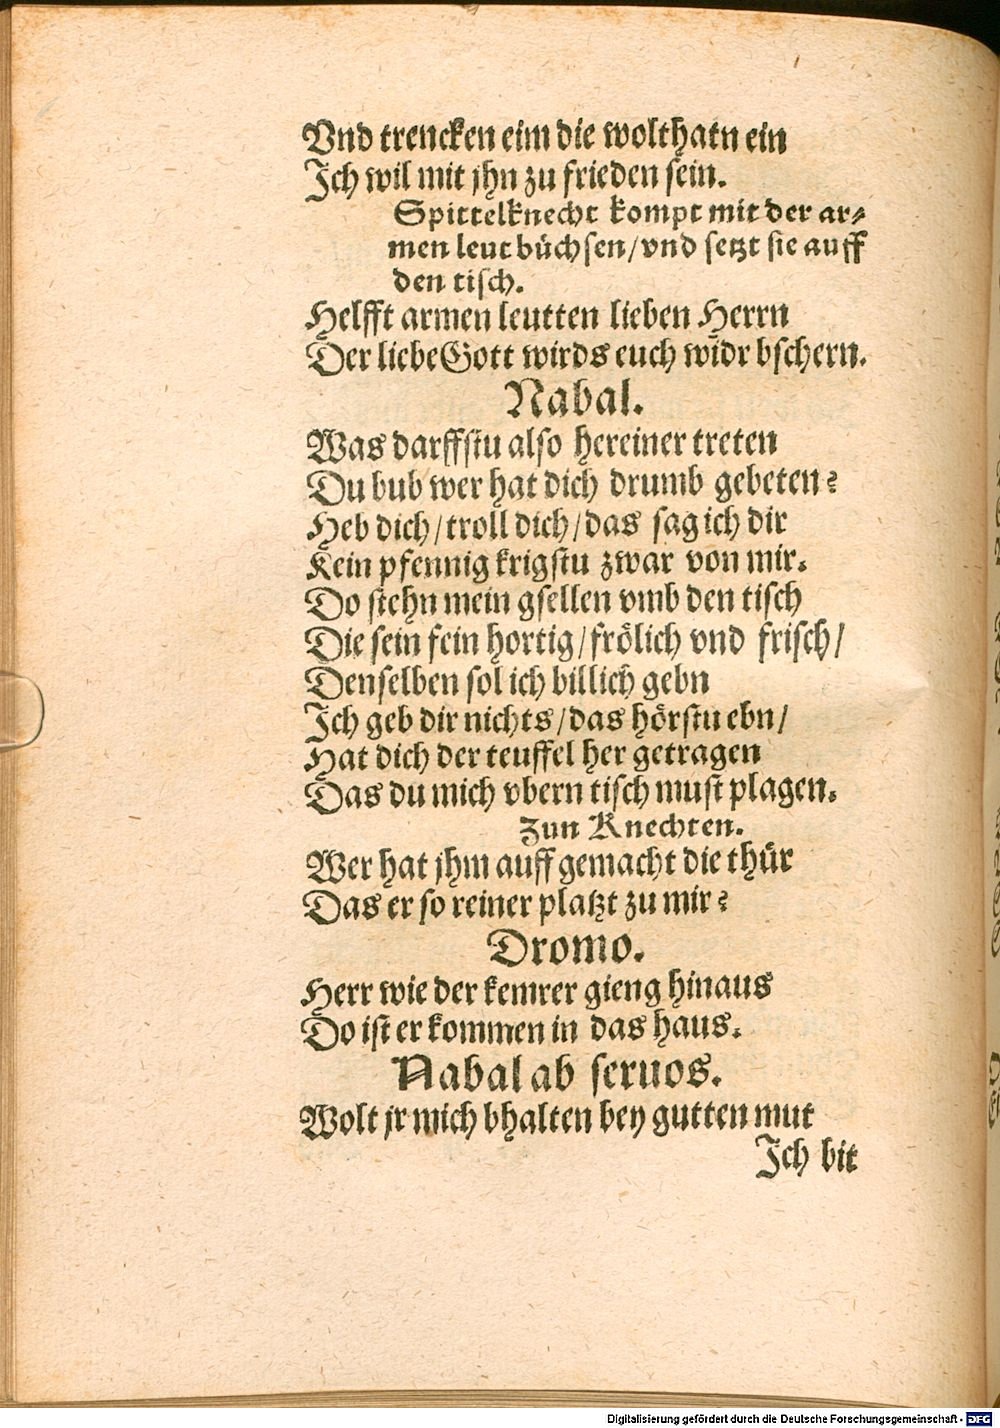 Vnd trencken eim die wolthatn ein
Jch wil mit jhn zu frieden sein.
Spittelknecht kompt mit der ar⸗
men leut büchsen/vnd setzt sie auff
den tisch.
Helfft armen leutten lieben Herrn
Der liebe Gott wirds euch widr bschern.
Nabal.
Was darffstu also hereiner treten
Du bub wer hat dich drumb gebeten?
Heb dich/troll dich/das sag ich dir
Kein pfennig krigstu zwar von mir.
Do stehn mein gsellen vmb den tisch
Die sein fein hortig/frölich vnd frisch/
Denselben sol ich billich gebn
Jch geb dir nichts/das hörstu ebn/
Hat dich der teuffel her getragen
Das du mich vbern tisch must plagen.
Zun Knechten.
Wer hat jhm auff gemacht die thür
Das er so reiner platzt zu mir?
Dromo.
Herr wie der kemrer gieng hinaus
Do ist er kommen in das haus.
Nabal ab seruos.
Wolt jr mich bhalten bey gutten mut
Jch bit
Digitalisierung gefördert durch die Deutsche Forschungsgemeinschaft - DFG